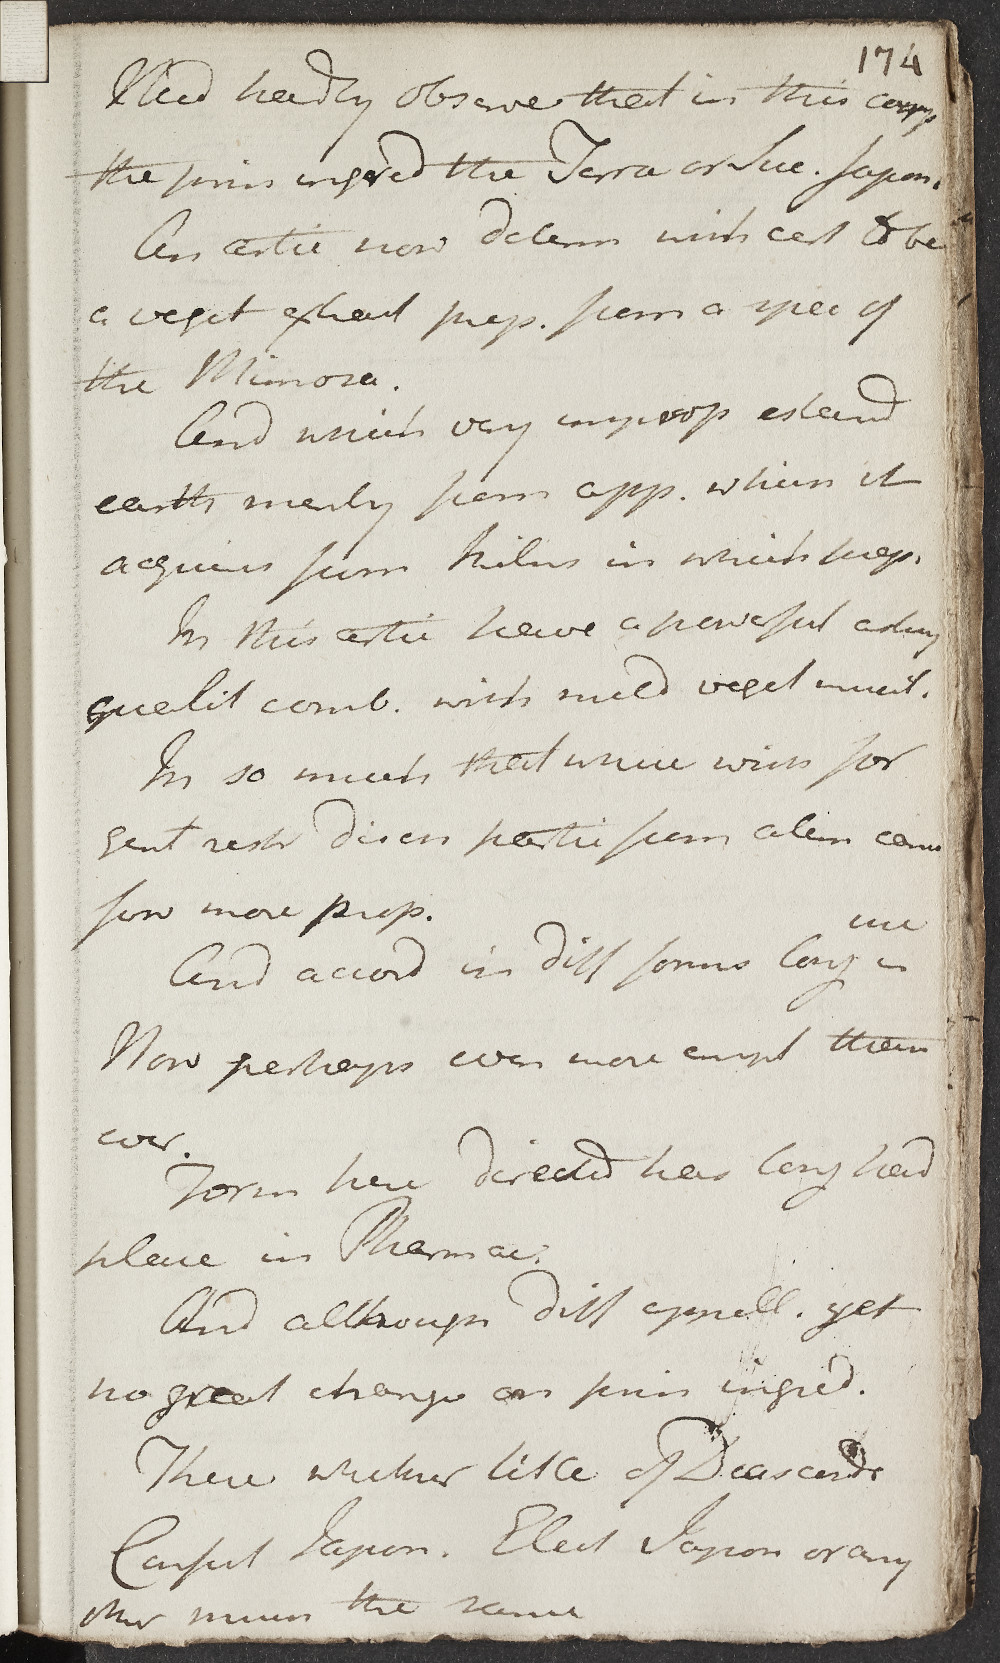 174
Need hardly observe that in this comp
the prin ingred the Terra or Suc. Japon.
An artic now determ with cert to be
a veget extract prep. from a spec of
the Mimosa.
And which very improp esteemd
earth merly from app. which it
acquires from in which prep.
In this artic have a powerful astring
qualit comb. with mild veget mucil.
In so much that where wish for
gent restr from alim can
few more prop.
And accord in diff forms long in
use
Now perhaps even more empl then
ever.
Form here directed has long had
place in Pharmac.
And although diff appell. yet
no great change on prin ingred.
There whether title of Diascord
Confect Japon. Elect Japon or any
other mean the same